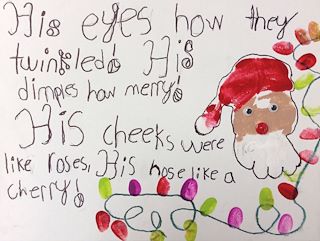 His eyes how they
twinkled! His
dimples how merry!
His cheeks were
like roses, His nose like a
cherry!